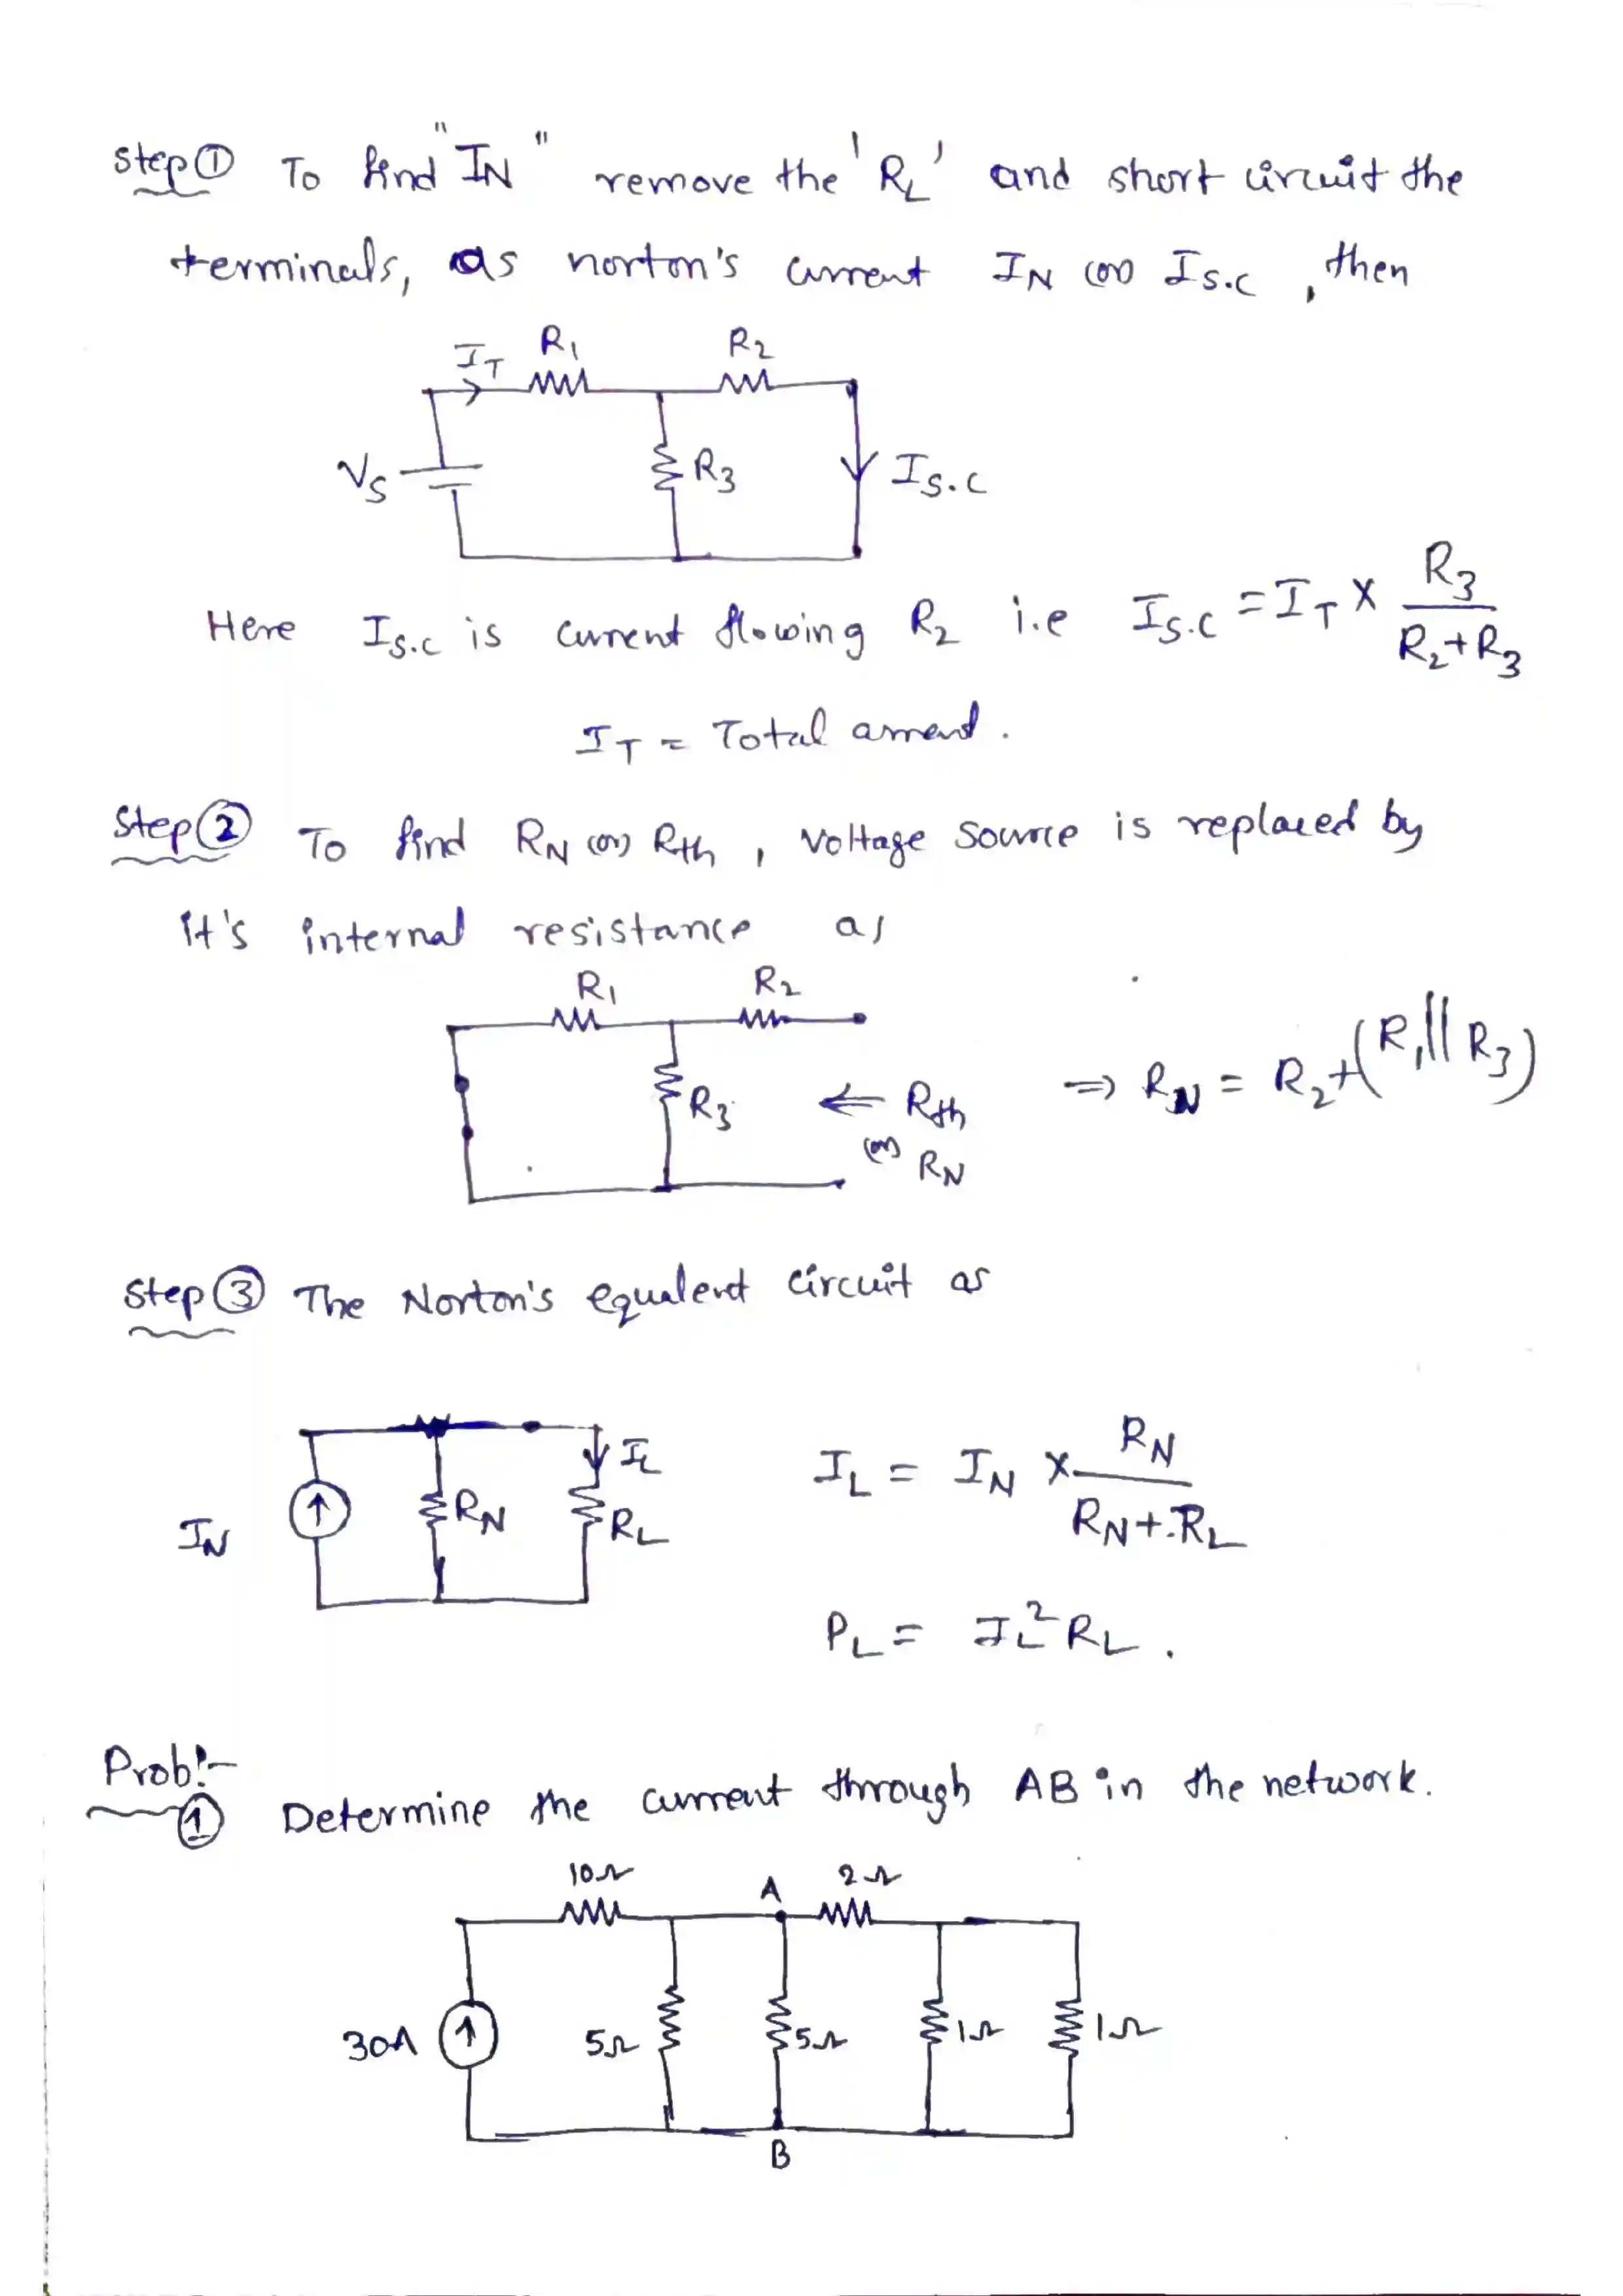 Step ① To find "IN" remove the 'RL' and short circuit the
terminals, as norton's current IN (or) IS.C, then
IT R1 R2
VS R3 IS.C
Here IS.C is current flowing R2 i.e IS.C = IT × R3 / (R2+R3)
IT = Total current.
Step ② To find RN (or) Rth, Voltage Source is replaced by
it's internal resistance as
R1 R2
R3 ⇐ Rth (or) RN ⇒ RN = R2+(R1||R3)
Step ③ The Norton's equalent circuit as
IN RN IL RL
IL = IN × RN / (RN+RL)
PL = IL² RL.
Prob:-
① Determine the current through AB in the network.
10Ω A 2Ω
30A 5Ω 5Ω 1Ω 1Ω
B